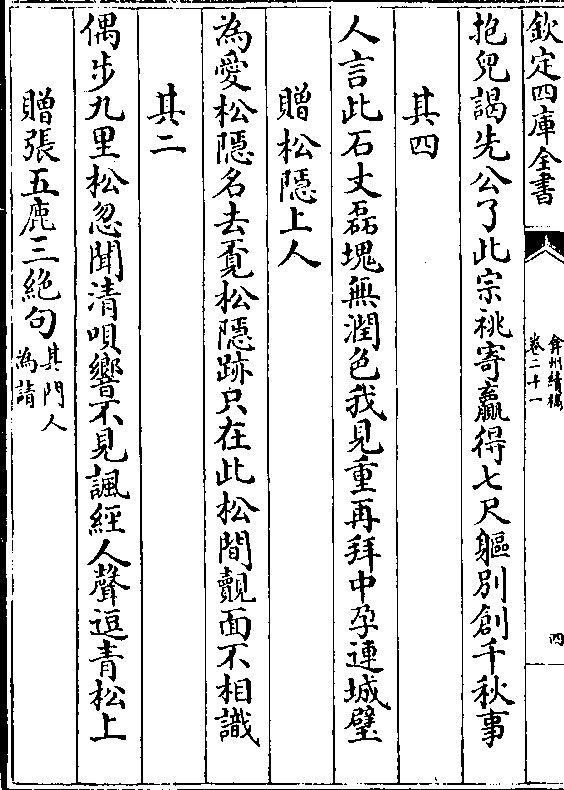 欽定四庫全書
弇州續稿
卷二十一
四
抱兒謁先公了此宗祧寄贏得七尺軀別創千秋事
其四
人言此石丈磊塊無潤色我見重再拜中孕連城璧
贈松隱上人
為愛松隱名去覔松隱跡只在此松間覿面不相識
其二
偶步九里松忽聞清唄響不見諷經人聲逗青松上
贈張五鹿三絶句其門人為請